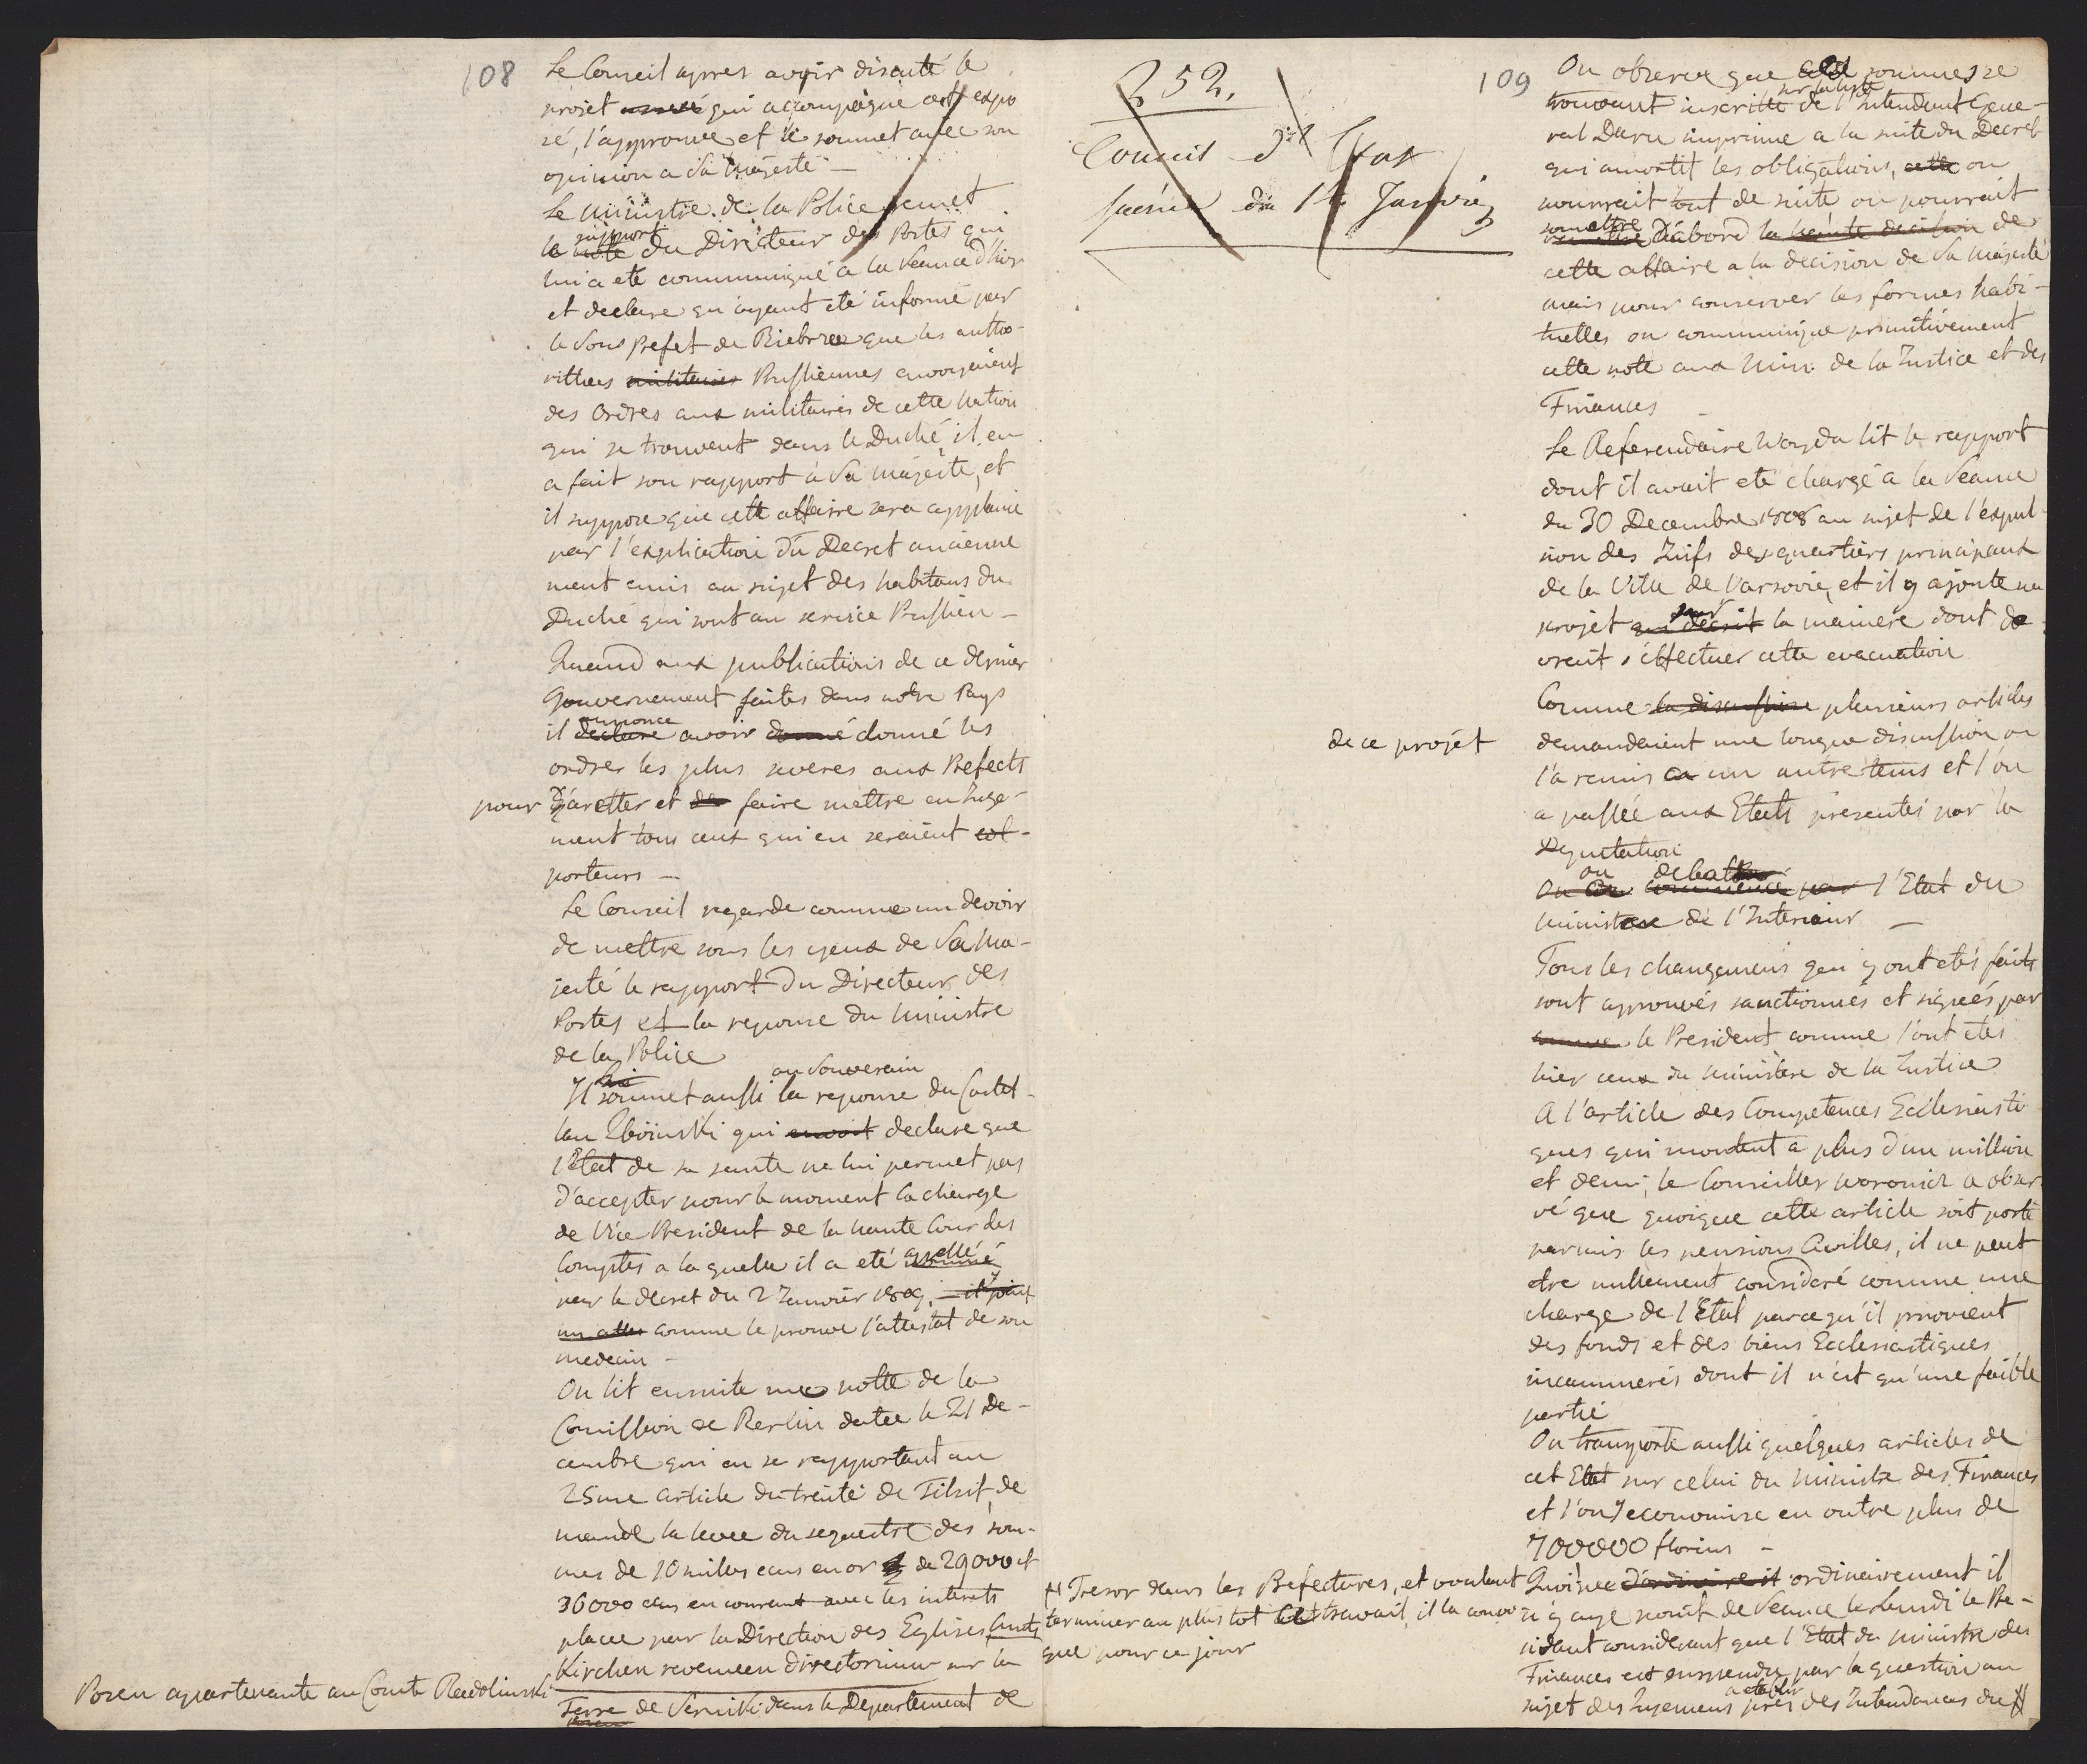 108
Le Conseil apres avoir discuté le
projet annexé qui accompagne cet expo
sé, l'approuve et le soumet avec son
opinion a Sa Majesté —
Le Ministre de la Police remet
rapport
le note du Directeur des Postes qui
lui a eté communiqué a la Seance d'hier
et declare qu'ayant eté informé par
le Sous Prefet de Biebrze que les autho-
rithes militaires Prussiennes envoyaient
des Ordres aux militaires de cette Nation
qui se trouvent dans le Duché, il en
a fait son rapport à Sa Majeste, et
il suppose que cette affaire sera applanie
par l'explication du Decret ancienne
ment emis au sujet des habitans du
Duché qui sont au service Prussien —
Quand aux publications de ce dernier
Gouvernement faites dans notre Pays
annonce
il declare avoir donné donné les
ordres les plus severes aux Prefects
pour d'arretter et de faire mettre en Juge-
ment tous ceux qui en seraient col-
porteurs —
Le Conseil regarde comme un devoir
de mettre sous les yeux de Sa Ma-
jesté le rapport du Directeur des
Postes et la reponse du Ministre
de la Police
lui au Souverain
Il soumet aussi la reponse du Castel-
lan Zboinski qui envoit declare que
l'Etat de sa sante ne lui permet pas
d'accepter pour le moment la charge
de Vice President de la haute Cour des
Comptes a la quelle il a eté appellé
nommé
par le decret du 2 Janvier 1809. — il joint
un attes comme le prouve l'attestat de son
medecin —
On lit ensuite une notte de la
Comission de Berlin datée le 21 De-
cembre qui en se rapportant au
25me article du traité de Tilsit, de
mande la levee du sequestre des som-
mes de 10 milles ecus en or de 29000 et
36000 ecus en courant avec les interets
placée par la Direction des Eglises Amts
Kirchen revenuen directorium sur la
Terre de Sierniki dans le Departement de
Posen apartenante au Comte Radolinski
252.
Conseil d'Etat
Seance du 14 Janvier
109
On observe que ces sommes se
sur la liste
trouvant inscritte de l'Intendant Gene-
ral Daru imprimé a la suite du Decret
qui amortit les obligations, cette on
pourrait tout de suite on pourrait
soumettre
remettre d'abord la haute decision de
cette affaire a la decision de Sa Majesté
mais pour conserver les formes habi-
tuelles on communique primitivement
cette note aux Min. de la Justice et des
Finances —
Le Referendaire Woyda lit le rapport
dont il avait eté chargé a la Seance
du 30 Decembre 1808 au sujet de l'expul
sion des Juifs des quartiers principaux
de la Ville de Varsovie, et il y ajoute un
sur
projet qui decrit la maniere dont de-
vrait s'effectuer cette evacuation
Comme la discussion plusieurs articles
de ce projet
demandaient une longue discussion on
l'a remis a un autre tems et l'on
a passée aux Etats presentés par la
Deputation
on debattu
On on commence par l'Etat du
Ministere de l'Interieur —
Tous les changemens qui y ont etés faits
sont approuvés sanctionnés et signés par
comme le President comme l'ont etés
hier ceux du Ministere de la Justice
A l'article des Competences Ecclesiasti
ques qui montent a plus d'un million
et demi, le Conseiller Woronicz a obser
vé que quoique cette article soit porté
parmis les pensions Civilles, il ne peut
etre nullement consideré comme une
charge de l'Etat parcequ'il provient
des fonds et des biens Ecclesiastiques
incammerés dont il n'est qu'une faible
partie
On transporte aussi quelques articles de
cet Etat sur celui du Ministre des Finances
et l'on y economise en outre plus de
700000 florins —
Quoique d'ordinaire it ordinairement il
n'y aye point de Seance le Lundi le Pre-
sidant considerant que l'Etat du Ministre des
Finances est suspendu par la question au
a etablir
sujet des Jugemens près des Intendances du #
# Tresor dans les Prefectures, et voulant
terminer au plus tot ce travail, il la convo
que pour ce jour